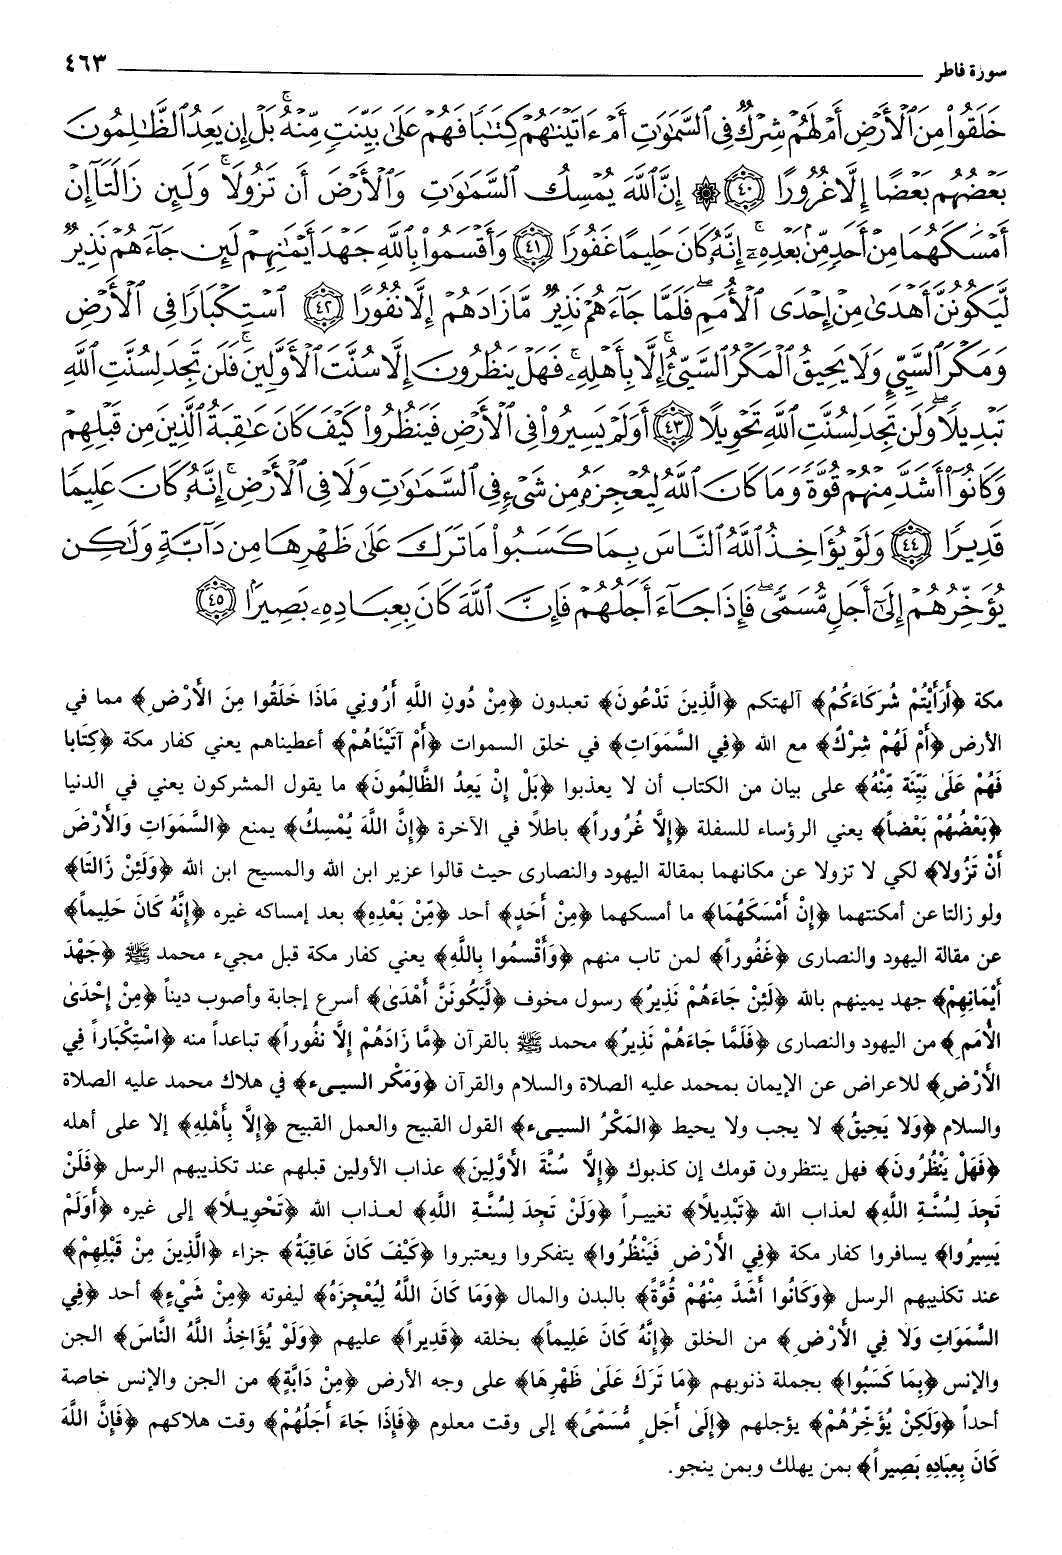 سورة فاطر ٤٦٣
خَلَقُوا۟ مِنَ ٱلْأَرْضِ أَمْ لَهُمْ شِرْكٌ فِى ٱلسَّمَٰوَٰتِ أَمْ ءَاتَيْنَٰهُمْ كِتَٰبًا فَهُمْ عَلَىٰ بَيِّنَتٍ مِّنْهُ ۚ بَلْ إِن يَعِدُ ٱلظَّٰلِمُونَ
بَعْضُهُم بَعْضًا إِلَّا غُرُورًا ﴿٤٠﴾ ۞ إِنَّ ٱللَّهَ يُمْسِكُ ٱلسَّمَٰوَٰتِ وَٱلْأَرْضَ أَن تَزُولَا ۚ وَلَئِن زَالَتَآ إِنْ
أَمْسَكَهُمَا مِنْ أَحَدٍ مِّنۢ بَعْدِهِۦٓ ۚ إِنَّهُۥ كَانَ حَلِيمًا غَفُورًا ﴿٤١﴾ وَأَقْسَمُوا۟ بِٱللَّهِ جَهْدَ أَيْمَٰنِهِمْ لَئِن جَآءَهُمْ نَذِيرٌ
لَّيَكُونُنَّ أَهْدَىٰ مِنْ إِحْدَى ٱلْأُمَمِ ۖ فَلَمَّا جَآءَهُمْ نَذِيرٌ مَّا زَادَهُمْ إِلَّا نُفُورًا ﴿٤٢﴾ ٱسْتِكْبَارًا فِى ٱلْأَرْضِ
وَمَكْرَ ٱلسَّيِّئِ ۚ وَلَا يَحِيقُ ٱلْمَكْرُ ٱلسَّيِّئُ إِلَّا بِأَهْلِهِۦ ۚ فَهَلْ يَنظُرُونَ إِلَّا سُنَّتَ ٱلْأَوَّلِينَ ۚ فَلَن تَجِدَ لِسُنَّتِ ٱللَّهِ
تَبْدِيلًا ۖ وَلَن تَجِدَ لِسُنَّتِ ٱللَّهِ تَحْوِيلًا ﴿٤٣﴾ أَوَلَمْ يَسِيرُوا۟ فِى ٱلْأَرْضِ فَيَنظُرُوا۟ كَيْفَ كَانَ عَٰقِبَةُ ٱلَّذِينَ مِن قَبْلِهِمْ
وَكَانُوٓا۟ أَشَدَّ مِنْهُمْ قُوَّةً ۚ وَمَا كَانَ ٱللَّهُ لِيُعْجِزَهُۥ مِن شَىْءٍ فِى ٱلسَّمَٰوَٰتِ وَلَا فِى ٱلْأَرْضِ ۚ إِنَّهُۥ كَانَ عَلِيمًا
قَدِيرًا ﴿٤٤﴾ وَلَوْ يُؤَاخِذُ ٱللَّهُ ٱلنَّاسَ بِمَا كَسَبُوا۟ مَا تَرَكَ عَلَىٰ ظَهْرِهَا مِن دَآبَّةٍ وَلَٰكِن
يُؤَخِّرُهُمْ إِلَىٰٓ أَجَلٍ مُّسَمًّى ۖ فَإِذَا جَآءَ أَجَلُهُمْ فَإِنَّ ٱللَّهَ كَانَ بِعِبَادِهِۦ بَصِيرًۢا ﴿٤٥﴾
مكة ﴿أَرَأَيْتُمْ شُرَكَاءَكُمُ﴾ آلهتكم ﴿الَّذِينَ تَدْعُونَ﴾ تعبدون ﴿مِنْ دُونِ اللَّهِ أَرُونِي مَاذَا خَلَقُوا مِنَ الأَرْضِ﴾ مما في
الأرض ﴿أَمْ لَهُمْ شِرْكٌ﴾ مع الله ﴿فِي السَّمَوَاتِ﴾ في خلق السموات ﴿أَمْ آتَيْنَاهُمْ﴾ أعطيناهم يعني كفار مكة ﴿كِتَابا
فَهُمْ عَلَىٰ بَيِّنَة مِّنْهُ﴾ على بيان من الكتاب أن لا يعذبوا ﴿بَلْ إِنْ يَعِدُ الظَّالِمُونَ﴾ ما يقول المشركون يعني في الدنيا
﴿بَعْضُهُمْ بَعْضاً﴾ يعني الرؤساء للسفلة ﴿إِلَّا غُرُوراً﴾ باطلاً في الآخرة ﴿إِنَّ اللَّهَ يُمْسِكُ﴾ يمنع ﴿السَّمَوَاتِ وَالأَرْضَ
أَنْ تَزُولا﴾ لكي لا تزولا عن مكانهما بمقالة اليهود والنصارى حيث قالوا عزير ابن الله والمسيح ابن الله ﴿وَلَئِنْ زَالَتَا﴾
ولو زالتا عن أمكنتهما ﴿إِنْ أَمْسَكَهُمَا﴾ ما أمسكهما ﴿مِنْ أَحَدٍ﴾ أحد ﴿مِّنْ بَعْدِهِ﴾ بعد إمساكه غيره ﴿إِنَّهُ كَانَ حَلِيماً﴾
عن مقالة اليهود والنصارى ﴿غَفُوراً﴾ لمن تاب منهم ﴿وَأَقْسَمُوا بِاللَّهِ﴾ يعني كفار مكة قبل مجيء محمد ﷺ ﴿جَهْدَ
أَيْمَانِهِمْ﴾ جهد يمينهم بالله ﴿لَئِنْ جَاءَهُمْ نَذِيرٌ﴾ رسول مخوف ﴿لَّيَكُونَنَّ أَهْدَى﴾ أسرع إجابة وأصوب ديناً ﴿مِنْ إِحْدَىٰ
الأُمَمِ﴾ من اليهود والنصارى ﴿فَلَمَّا جَاءَهُمْ نَذِيرٌ﴾ محمد ﷺ بالقرآن ﴿مَّا زَادَهُمْ إِلَّا نُفُوراً﴾ تباعداً منه ﴿اسْتِكْبَاراً فِي
الأَرْضِ﴾ للاعراض عن الإيمان بمحمد عليه الصلاة والسلام والقرآن ﴿وَمَكْرَ السيىء﴾ في هلاك محمد عليه الصلاة
والسلام ﴿وَلا يَحِيقُ﴾ لا يجب ولا يحيط ﴿المَكْرُ السيىء﴾ القول القبيح والعمل القبيح ﴿إِلَّا بِأَهْلِهِ﴾ إلا على أهله
﴿فَهَلْ يَنْظُرُونَ﴾ فهل ينتظرون قومك إن كذبوك ﴿إِلَّا سُنَّةَ الأَوَّلِينَ﴾ عذاب الأولين قبلهم عند تكذيبهم الرسل ﴿فَلَنْ
تَجِدَ لِسُنَّةِ اللَّهِ﴾ لعذاب الله ﴿تَبْدِيلاً﴾ تغييراً ﴿وَلَنْ تَجِدَ لِسُنَّةِ اللَّهِ﴾ لعذاب الله ﴿تَحْوِيلاً﴾ إلى غيره ﴿أَوَلَمْ
يَسِيرُوا﴾ يسافروا كفار مكة ﴿فِي الأَرْضِ فَيَنْظُرُوا﴾ يتفكروا ويعتبروا ﴿كَيْفَ كَانَ عَاقِبَةُ﴾ جزاء ﴿الَّذِينَ مِنْ قَبْلِهِمْ﴾
عند تكذيبهم الرسل ﴿وَكَانُوا أَشَدَّ مِنْهُمْ قُوَّةً﴾ بالبدن والمال ﴿وَمَا كَانَ اللَّهُ لِيُعْجِزَهُ﴾ ليفوته ﴿مِنْ شَيْءٍ﴾ أحد ﴿فِي
السَّمَوَاتِ وَلا فِي الأَرْضِ﴾ من الخلق ﴿إِنَّهُ كَانَ عَلِيماً﴾ بخلقه ﴿قَدِيراً﴾ عليهم ﴿وَلَوْ يُؤَاخِذُ اللَّهُ النَّاسَ﴾ الجن
والإنس ﴿بِمَا كَسَبُوا﴾ بجملة ذنوبهم ﴿مَا تَرَكَ عَلَىٰ ظَهْرِهَا﴾ على وجه الأرض ﴿مِنْ دَابَّةٍ﴾ من الجن والإنس خاصة
أحداً ﴿وَلَكِنْ يُؤَخِّرُهُمْ﴾ يؤجلهم ﴿إِلَىٰ أَجَلٍ مُّسَمًّى﴾ إلى وقت معلوم ﴿فَإِذَا جَاءَ أَجَلُهُمْ﴾ وقت هلاكهم ﴿فَإِنَّ اللَّهَ
كَانَ بِعِبَادِهِ بَصِيراً﴾ بمن يهلك وبمن ينجو.